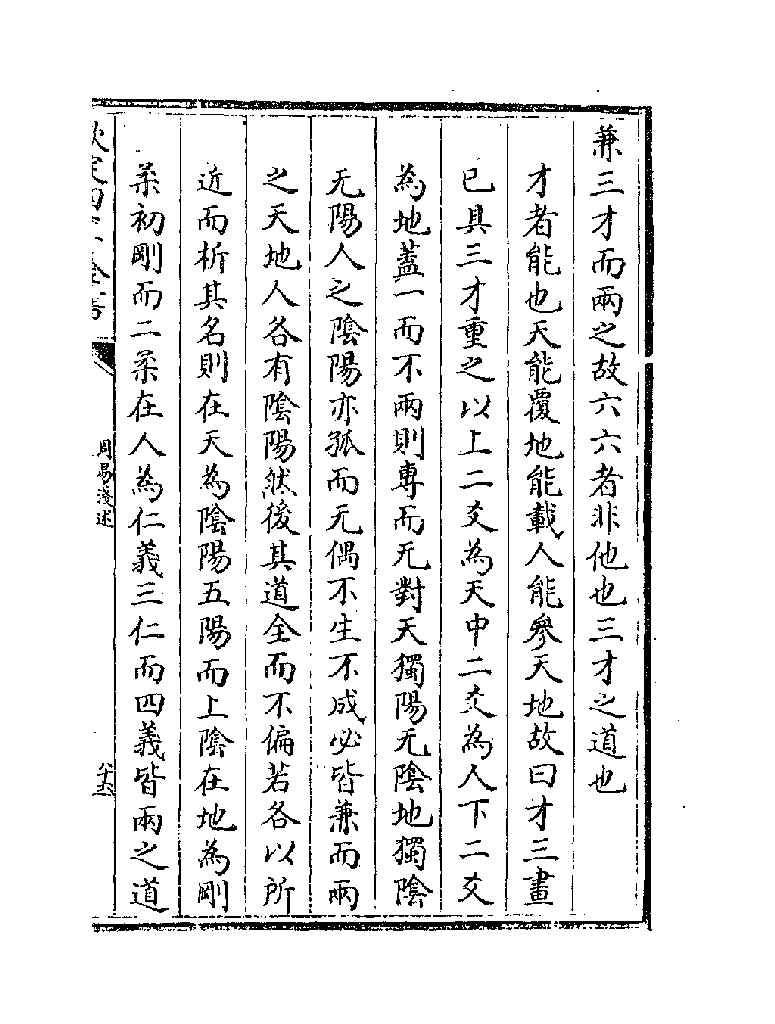 兼三才而兩之故六六者非他也三才之道也
才者能也天能覆地能載人能參天地故曰才三畫
已具三才重之以上二爻為天中二爻為人下二爻
為地蓋一而不兩則專而无對天獨陽无陰地獨陰
无陽人之陰陽亦孤而无偶不生不成必皆兼而兩
之天地人各有陰陽然後其道全而不偏若各以所
近而析其名則在天為陰陽五陽而上陰在地為剛
柔初剛而二柔在人為仁義三仁而四義皆兩之道
欽定四庫全書
周易淺述